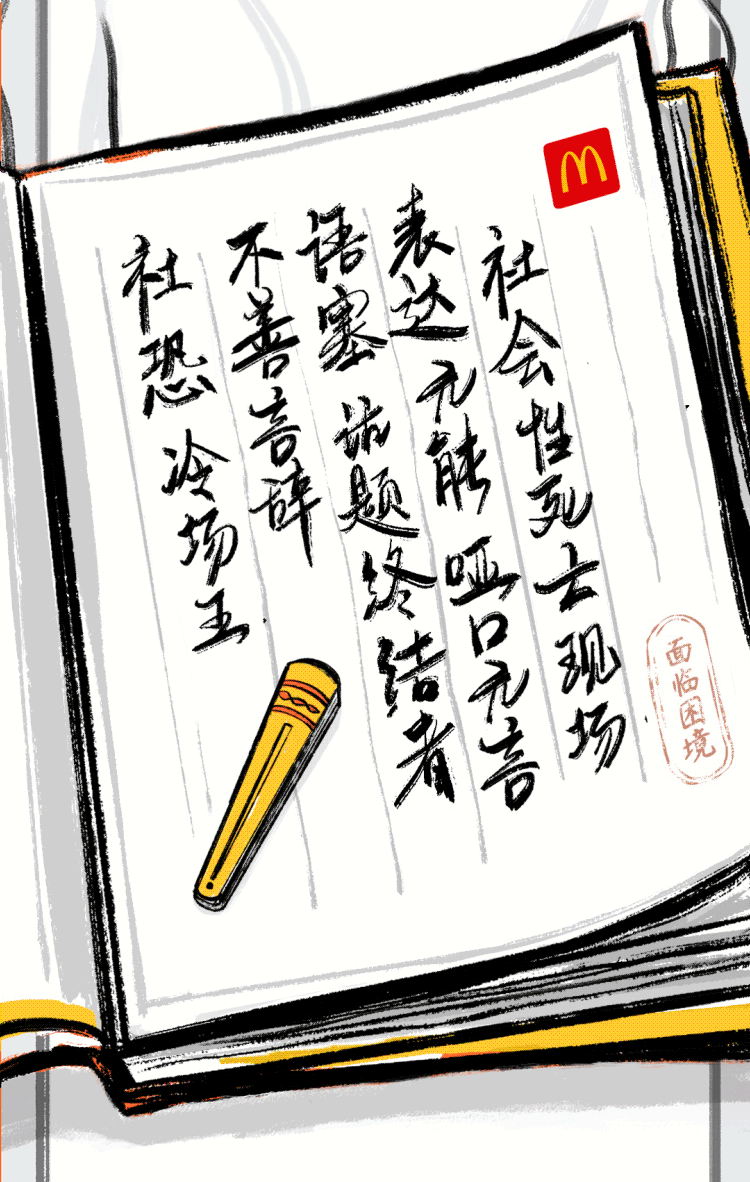 社会性死亡现场
表达无能 哑口无言
语塞 话题终结者
不善言辞
社恐 冷场王
面临困境